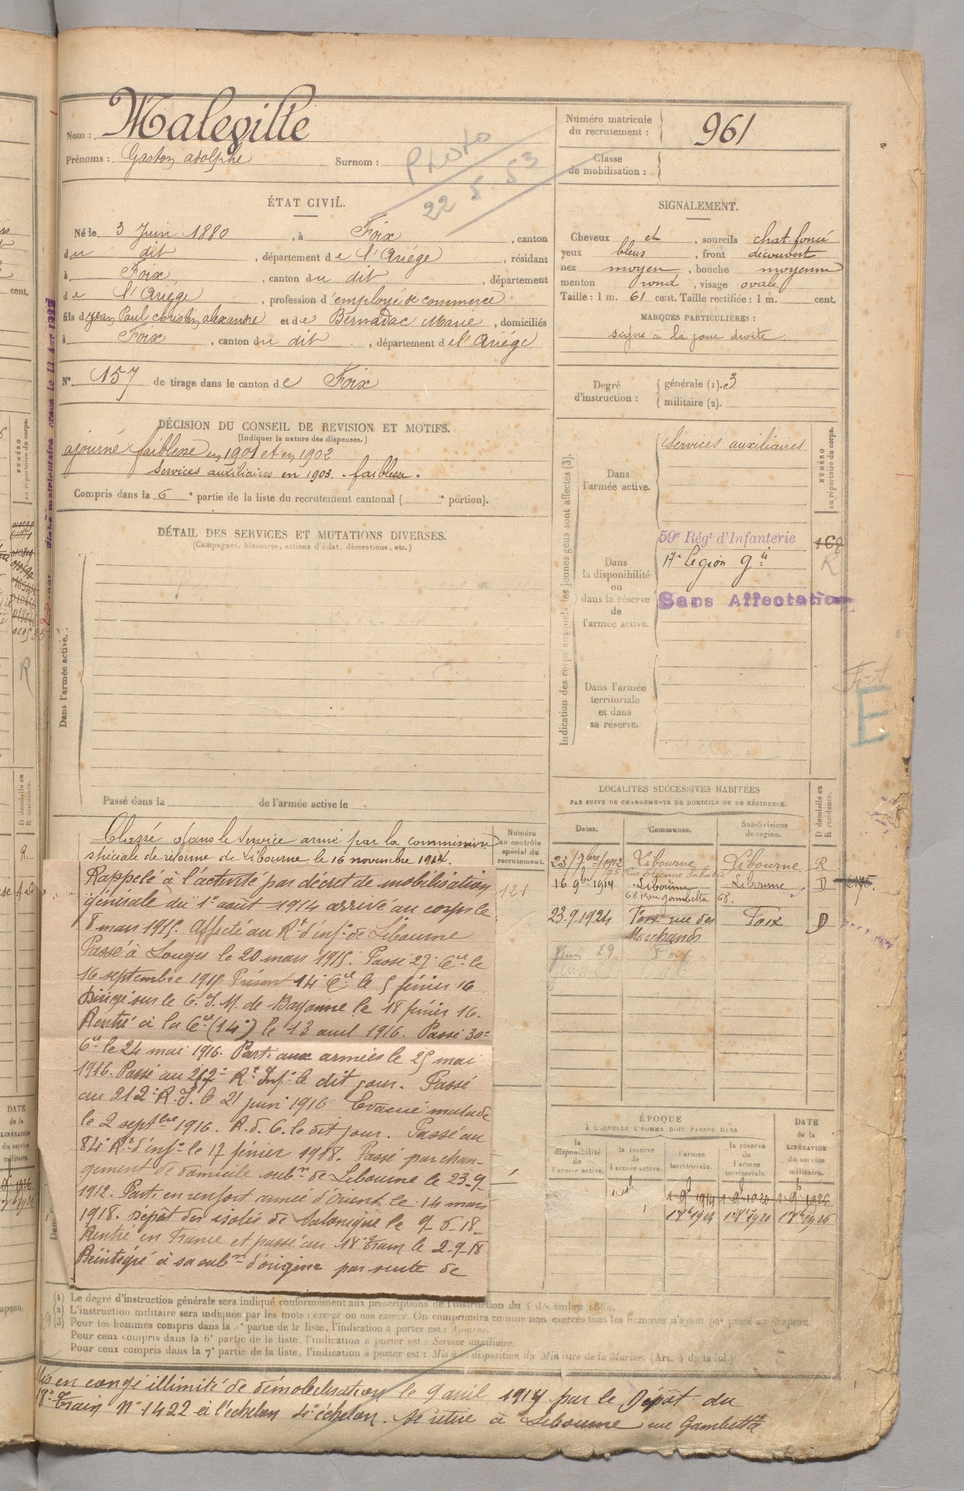 Nom : Malegille
Prénoms : Gaston adolphe Surnom :
Photo
22 5. 53
Numéro matricule
du recrutement : 961
Classe
de mobilisation :
ÉTAT CIVIL.
Né le 3 Juin 1880, à Foix, canton
du dit, département de l'Ariège, résidant
à Foix, canton du dit, département
de l'Ariège, profession d'employé de commerce
fils de Jean Paul alexandre et de Bernadac Marie, domiciliés
à Foix, canton du dit, département de l'Ariége
N° 157 de tirage dans le canton de Foix
SIGNALEMENT.
Cheveux et, sourcils chat. foncé
yeux bleus, front découvert
nez moyen, bouche moyenne
menton rond, visage ovale
Taille : 1 m. 61 cent. Taille rectifiée : 1 m. cent.
MARQUES PARTICULIÈRES :
signe à la joue droite
Degré
d'instruction :
générale (1). 3
militaire (2).
DÉCISION DU CONSEIL DE REVISION ET MOTIFS.
(Indiquer la nature des dispenses.)
ajourné faiblesse en 1901 et en 1902
Services auxiliaires en 1903. faiblesse.
Compris dans la 6e partie de la liste du recrutement cantonal ( e portion).
DÉTAIL DES SERVICES ET MUTATIONS DIVERSES.
(Campagnes, blessures, actions d'éclat, décorations, etc.)
Dans l'armée active.
Passé dans la de l'armée active le
Indication des corps auxquels les jeunes gens sont affectés (3).
NUMÉRO
au répertoire du corps.
Dans
l'armée active.
Services auxiliaires
Dans
la disponibilité
ou
dans la réserve
de
l'armée active.
59e Régt d'Infanterie
17e Légion
Sans Affectation
R
Dans l'armée
territoriale
et dans
sa réserve.
E
LOCALITÉS SUCCESSIVES HABITÉES
PAR SUITE DE CHANGEMENTS DE DOMICILE OU DE RÉSIDENCE.
Dates. Communes. Subdivisions
de région.
D domicile ou
R résidence.
23/7bre/1912 Libourne Libourne R
16. 9bre 1914 Libourne Libourne D
68 Rue gambetta 68.
23.9.1924 Foix rue des Foix D
Marchands
Numéro
au contrôle
spécial du
recrutement.
121
Classé dans le service armé par la commission
spéciale de réforme de Libourne le 16 novembre 1914.
Rappelé à l'activité par décret de mobilisation
générale du 1er août 1914 arrivé au corps le
8 mars 1915. Affecté au Rt d'infie de Libourne
Passé à Louges le 20 mars 1915. Passé 27e Cie le
16 septembre 1915 14e Cie le 5 février 16
Dirigé sur le C. I. M. de Bayonne le 18 février 16.
Rentré à la Cie (14e) le 13 avril 1916. Passé 30e
Cie le 24 mai 1916. Parti aux armées le 25 mai
1916. Passé au 212e Rt Infie le dit jour. Passé
au 212e R. I. le 21 juin 1916 Evacué malade
le 2 septbre 1916. R. d. C. le dit jour. Passé au
84e Rt d'infie le 17 février 1918. Passé par chan-
gement de domicile subon de Libourne le 23.9
1912. Parti en renfort armée d'Orient le 14 mars
1918. Dépôt des isolés de Salonique le 9 6 18
Rentré en France et passé au 18e Train le 2.9.18
Réintégré à sa subon d'origine par suite de
ÉPOQUE
À LAQUELLE L'HOMME DOIT PASSER DANS
la
disponibilité
de
l'armée active.
la réserve
de
l'armée active.
l'armée
territoriale.
la réserve
de
l'armée
territoriale.
DATE
de la
LIBÉRATION
du service
militaire.
(1) Le degré d'instruction générale sera indiqué conformément aux prescriptions de l'instruction du 4 décembre 1889.
(2) L'instruction militaire sera indiquée par les mots : exercé ou non exercé. On comprendra comme non exercés tous les hommes n'ayant pas passé au drapeau.
(3) Pour les hommes compris dans la partie de la liste, l'indication à porter est : Ajourné.
Pour ceux compris dans la 6e partie de la liste, l'indication à porter est : Service auxiliaire.
Pour ceux compris dans la 7e partie de la liste, l'indication à porter est : Mis à la disposition du Ministre de la Marine. (Art. 4 de la loi.)
Mis en congé illimité de démobilisation le 9 avril 1919 par le Dépôt du
18e Train N° 1422 à l'échelon 4e échelon. Se retire à Libourne rue Gambetta